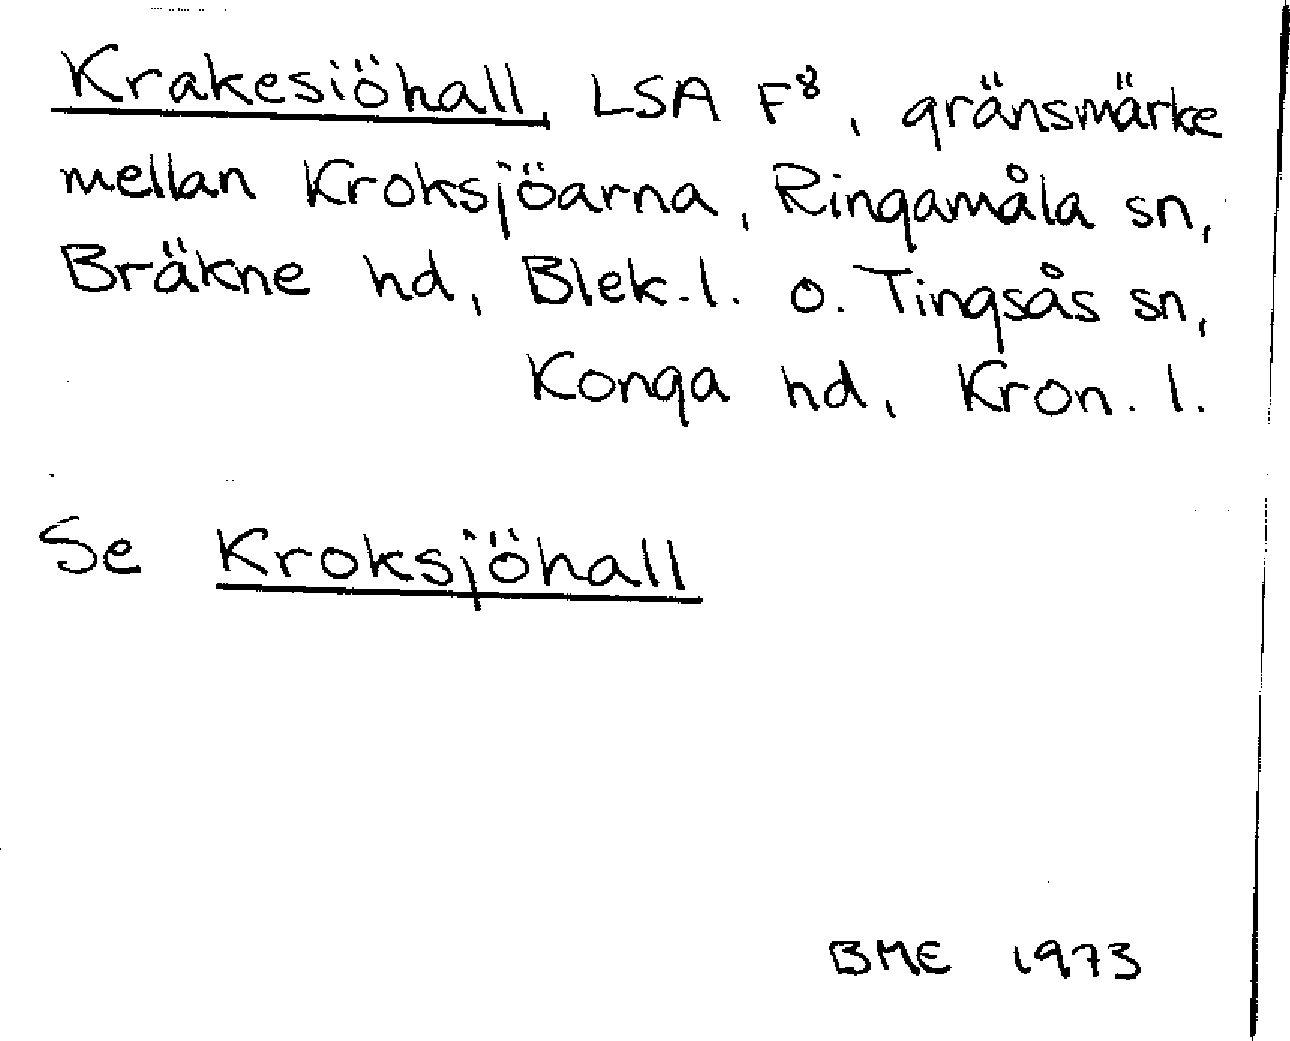 Krakesiöhall LSA F⁸, gränsmärke
mellan Kroksjöarna, Ringamåla sn,
Bräkne hd, Blek. l. o. Tingsås sn,
Konga hd, Kron. l.
Se Kroksjöhall
BME 1973